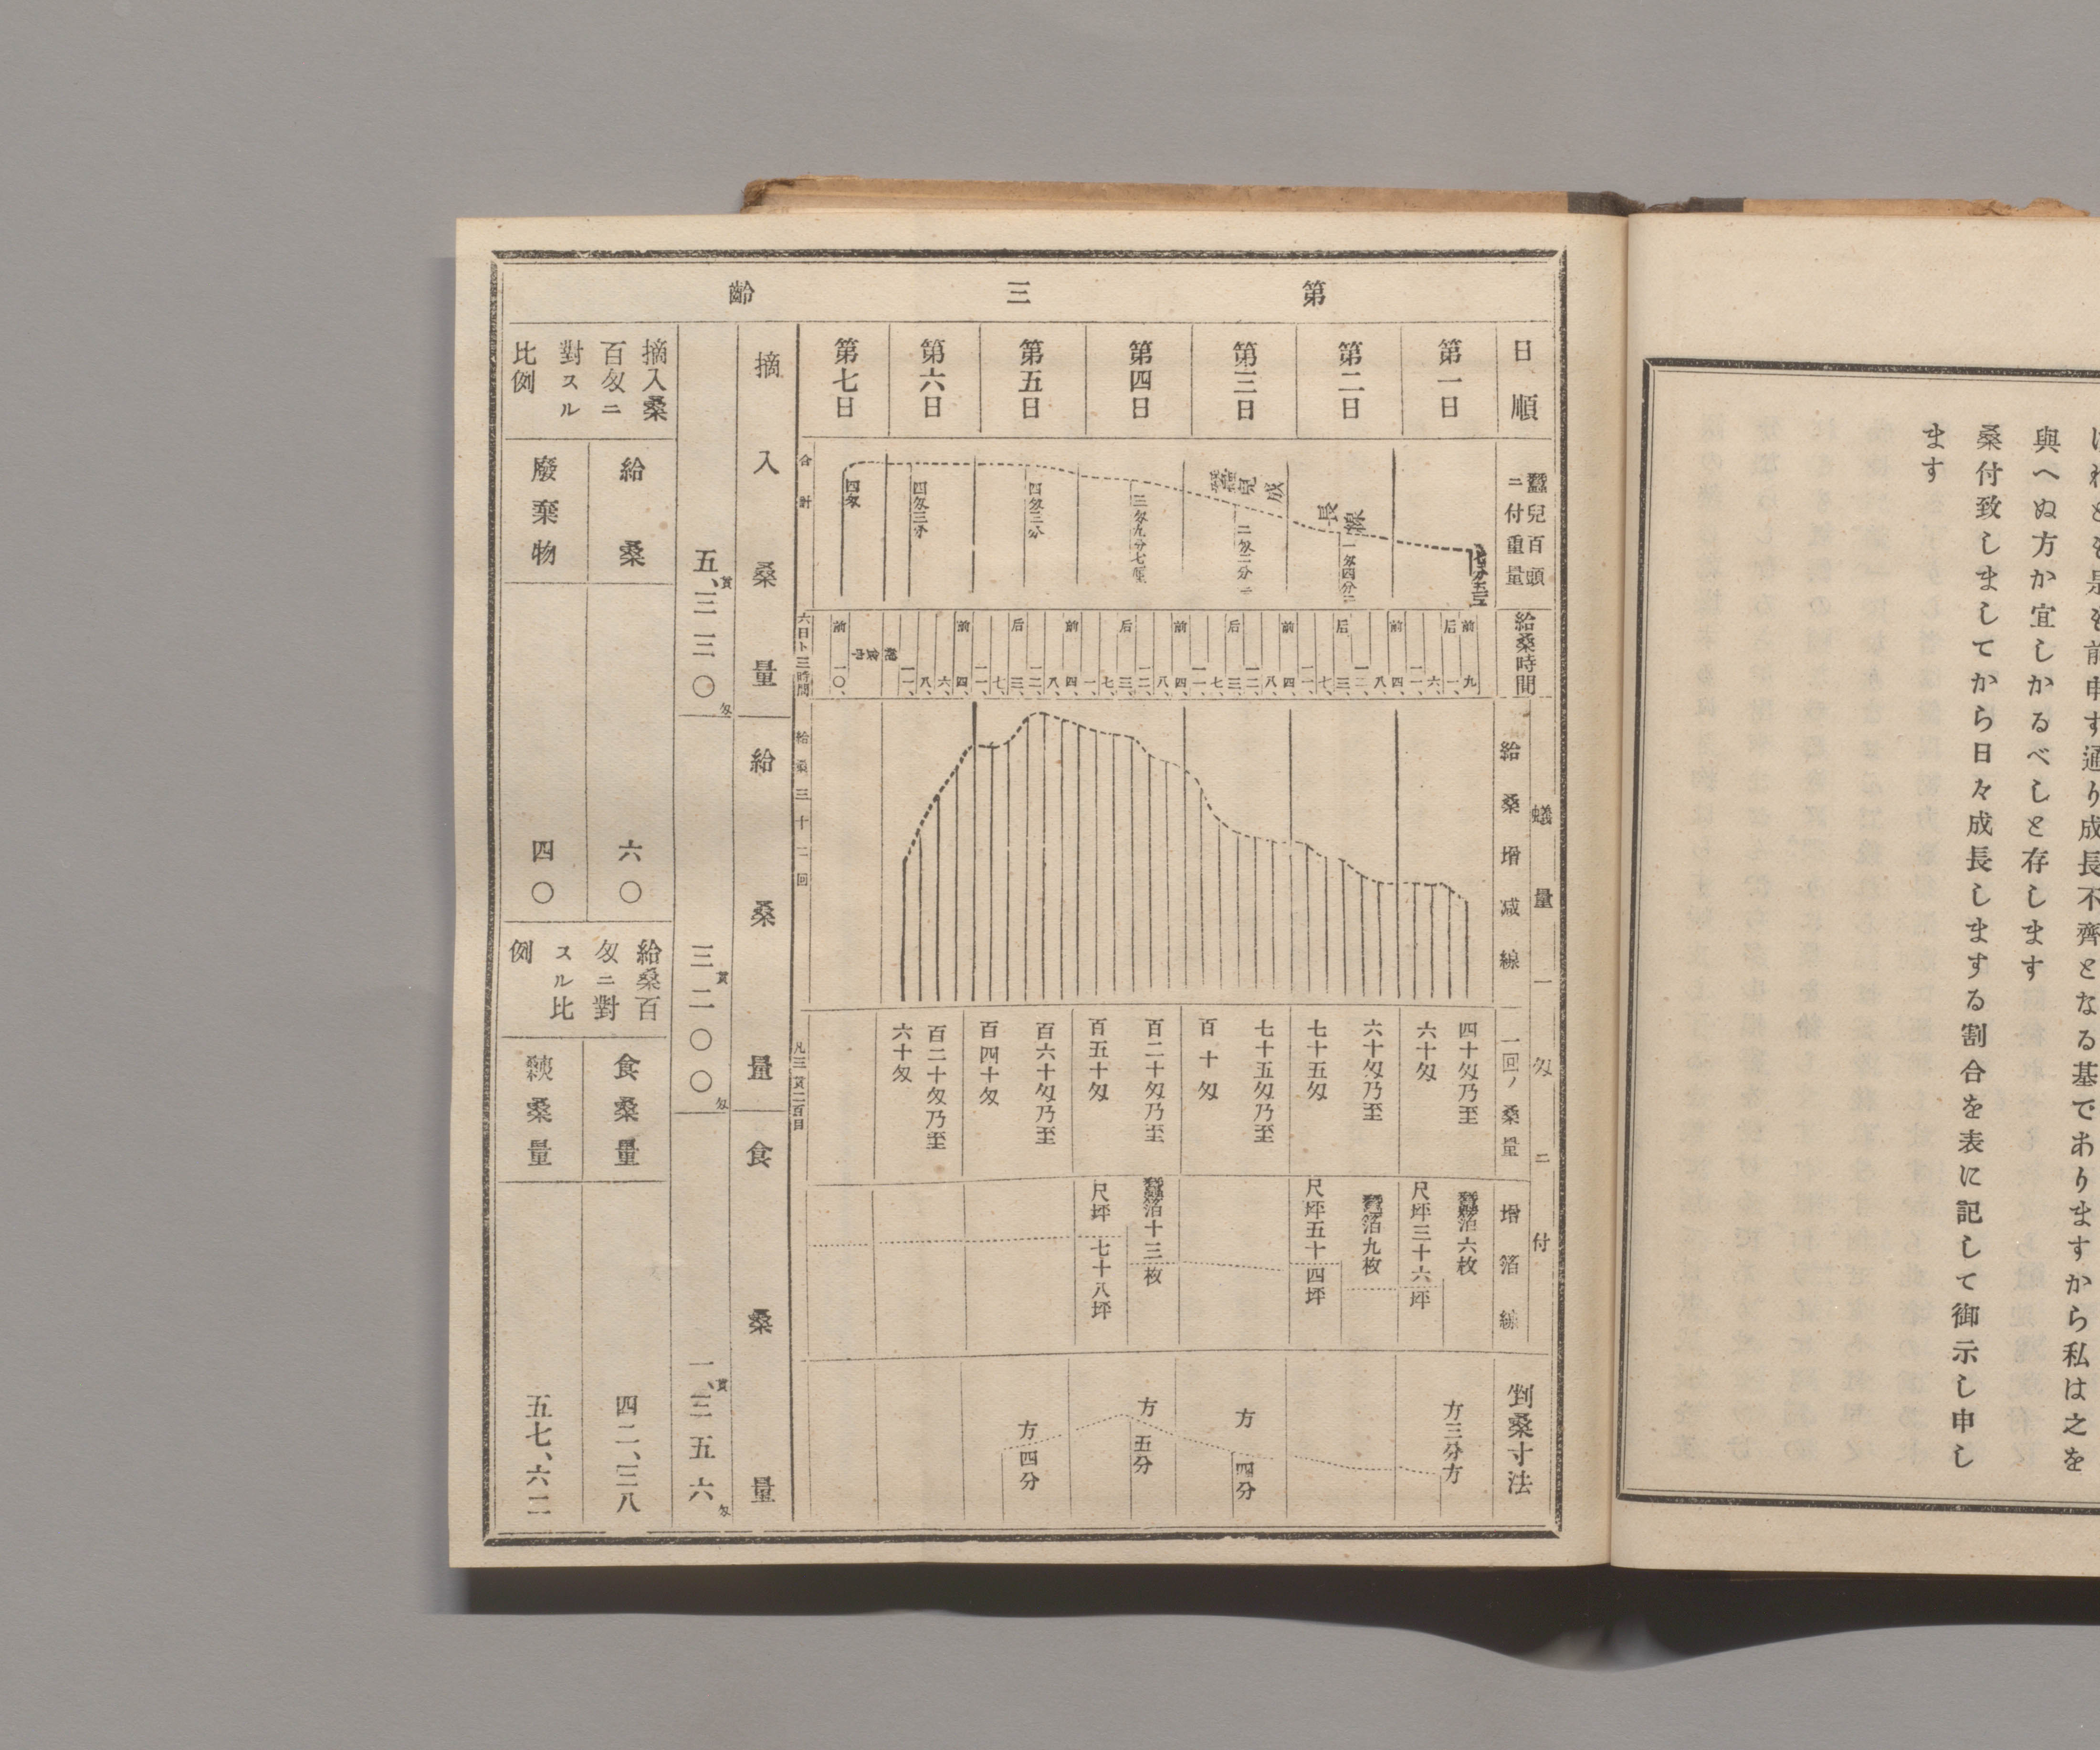 與へぬ方か宜しかるべしと存します
桑付致しましてから日々成長しまする割合を表に記して御示し申し
ます
第三齢
日順
第一日
第二日
第三日
第四日
第五日
第六日
第七日
蠶兒百頭
ニ付重量
蠶兒成長線
一匁四分二
二匁二分二
三匁九分七厘
四匁三分
四匁三分
四匁
合計
給桑時間
六日ト三時間
蟻量一匁ニ付
給桑増减線
給桑三十二回
一回ノ桑量
四十匁乃至
六十匁
六十匁乃至
七十五匁
七十五匁乃至
百十匁
百二十匁乃至
百五十匁
百六十匁乃至
百四十匁
百二十匁乃至
六十匁
凡三貫二百目
増箔線
蠶箔六枚
尺坪三十六坪
蠶箔九枚
尺坪五十四坪
蠶箔十三枚
尺坪七十八坪
剉桑寸法
方三分方
方四分
方五分
方四分
摘入桑量
給桑量
食桑量
五、貫三三〇匁
三貫二〇〇匁
一、貫三五六匁
摘入桑
百匁ニ
對スル
比例
給桑
六〇
廢棄物
四〇
給桑百
匁ニ對
スル比
例
食桑量
四二、三八
殘桑量
五七、六二